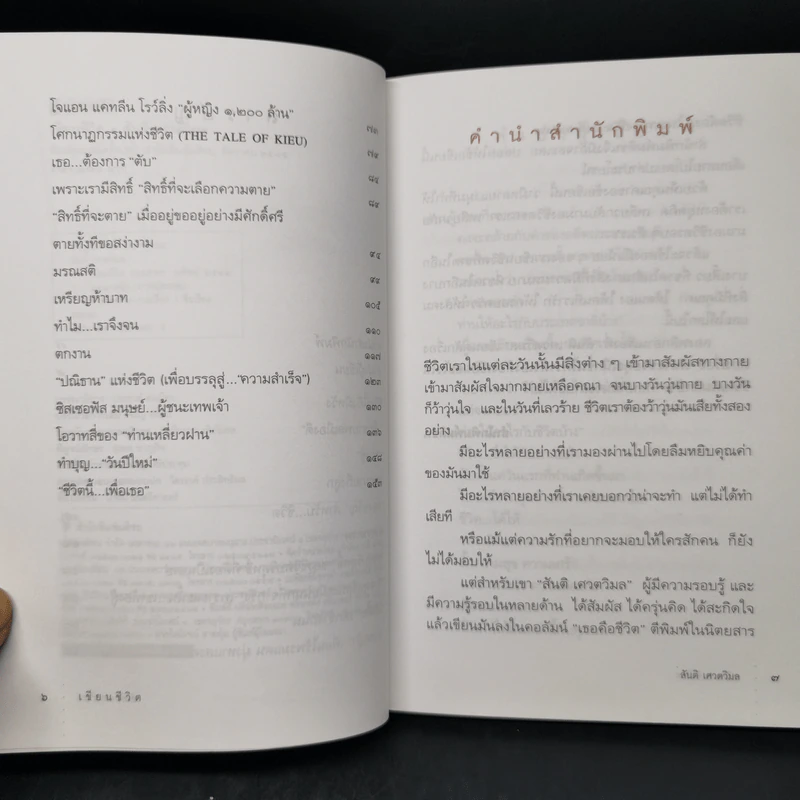 โจแอน แคทลีน โรว์ลิ่ง "ผู้หญิง ๑,๒๐๐ ล้าน"
โศกนาฏกรรมแห่งชีวิต (THE TALE OF KIEU) ๗๓
เธอ...ต้องการ "ตับ" ๗๙
เพราะเรามีสิทธิ์ "สิทธิ์ที่จะเลือกความตาย" ๘๔
"สิทธิ์ที่จะตาย" เมื่ออยู่ขออยู่อย่างมีศักดิ์ศรี ๘๙
ตายทั้งทีขอสง่างาม
มรณสติ ๙๔
เหรียญห้าบาท ๙๙
ทำไม...เราจึงจน ๑๐๕
ตกงาน ๑๑๐
"ปณิธาน" แห่งชีวิต (เพื่อบรรลุสู่..."ความสำเร็จ") ๑๑๗
ซิสเซอฟัส มนุษย์...ผู้ชนะเทพเจ้า ๑๒๓
โอวาทสี่ของ "ท่านเหลี่ยวฝาน" ๑๓๐
ทำบุญ..."วันปีใหม่" ๑๓๖
"ชีวิตนี้...เพื่อเธอ" ๑๔๘
๑๕๓
๖ เขียนชีวิต
คำนำสำนักพิมพ์
ชีวิตเราในแต่ละวันนั้นมีสิ่งต่าง ๆ เข้ามาสัมผัสทางกาย
เข้ามาสัมผัสใจมากมายเหลือคณา จนบางวันวุ่นกาย บางวัน
ก็ว้าวุ่นใจ และในวันที่เลวร้าย ชีวิตเราต้องว้าวุ่นมันเสียทั้งสอง
อย่าง
มีอะไรหลายอย่างที่เรามองผ่านไปโดยลืมหยิบคุณค่า
ของมันมาใช้
มีอะไรหลายอย่างที่เราเคยบอกว่าน่าจะทำ แต่ไม่ได้ทำ
เสียที
หรือแม้แต่ความรักที่อยากจะมอบให้ใครสักคน ก็ยัง
ไม่ได้มอบให้
แต่สำหรับเขา "สันติ เศวตวิมล" ผู้มีความรอบรู้ และ
มีความรู้รอบในหลายด้าน ได้สัมผัส ได้ครุ่นคิด ได้สะกิดใจ
แล้วเขียนมันลงในคอลัมน์ "เธอคือชีวิต" ตีพิมพ์ในนิตยสาร
สันติ เศวตวิมล ๗